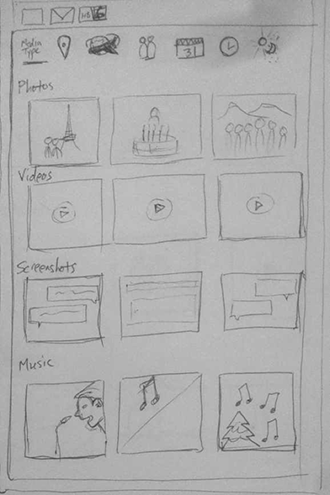 Media
Type
31
Photos
Videos
Screenshots
Music